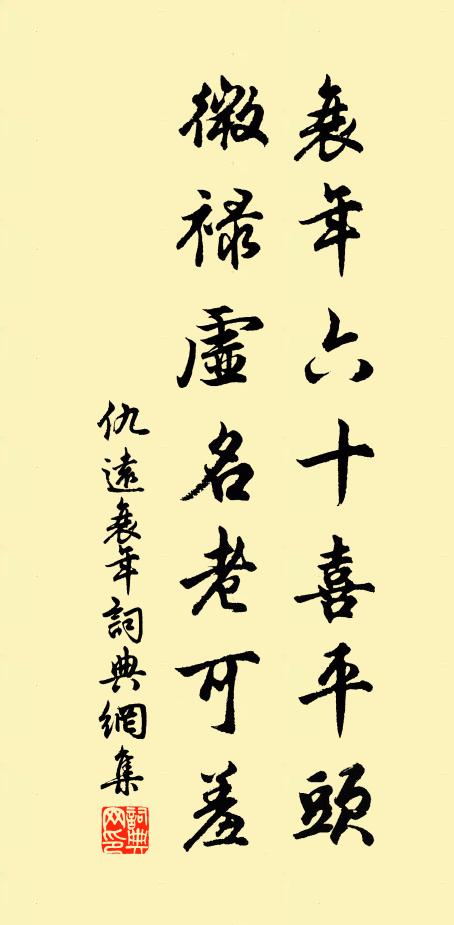 衰年六十喜平頭
微禄虛名老可羞
仇遠衰年詞典網集
詞典網印